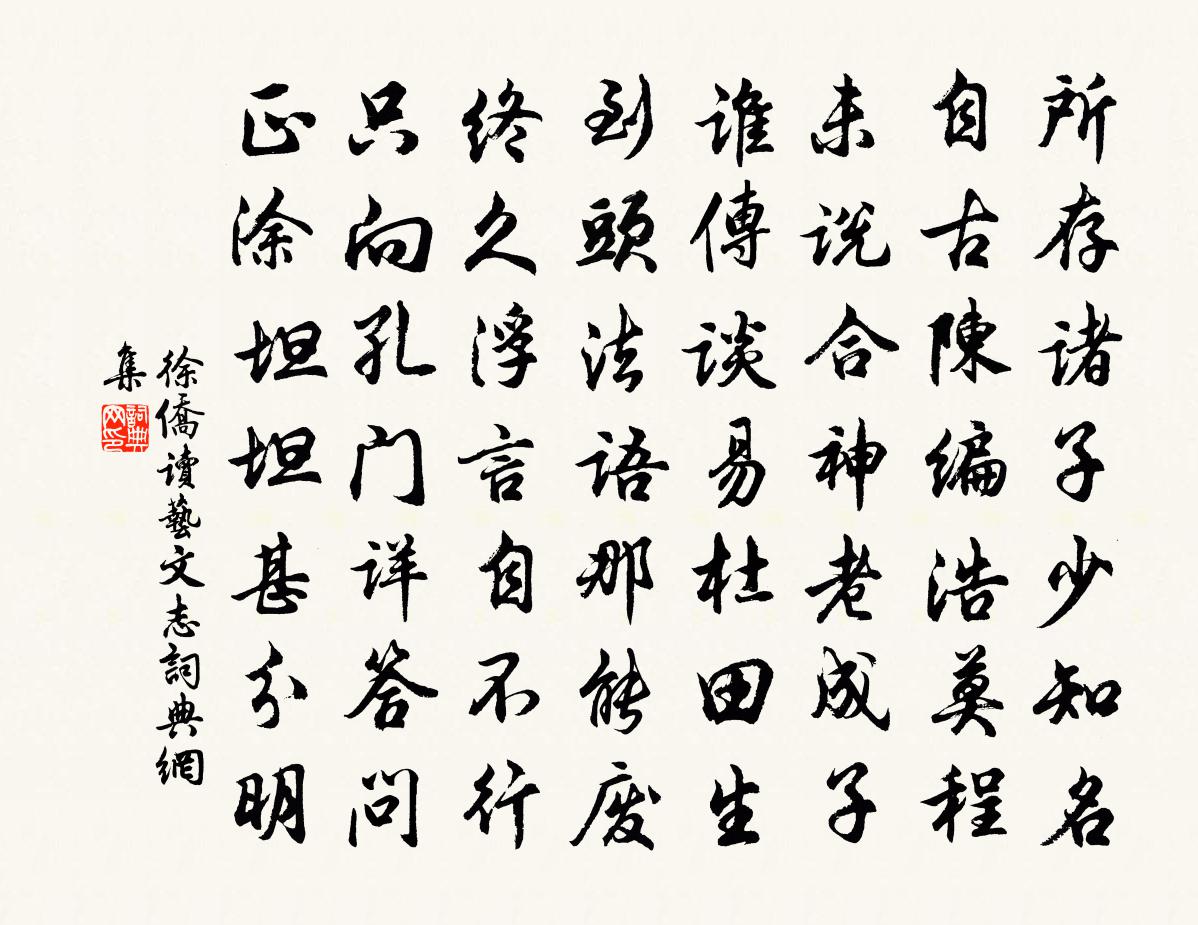 所存诸子少知名
自古陳编浩莫程
未说合神老成子
谁傳谈易杜田生
到頭法语那能废
终久浮言自不行
只向孔门详答问
正涂坦坦甚分明
徐僑讀藝文志詞典網
集
詞典
网印